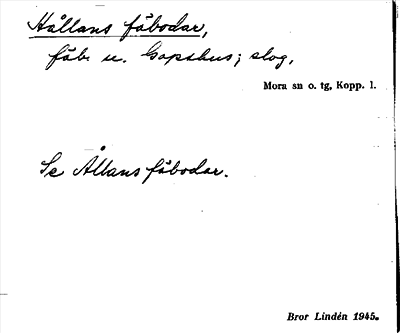 Hållans fäbodar,
fäb. u. Gopshus; slog.
Mora sn o. tg, Kopp. l.
Se Ållans fäbodar.
Bror Lindén 1945.